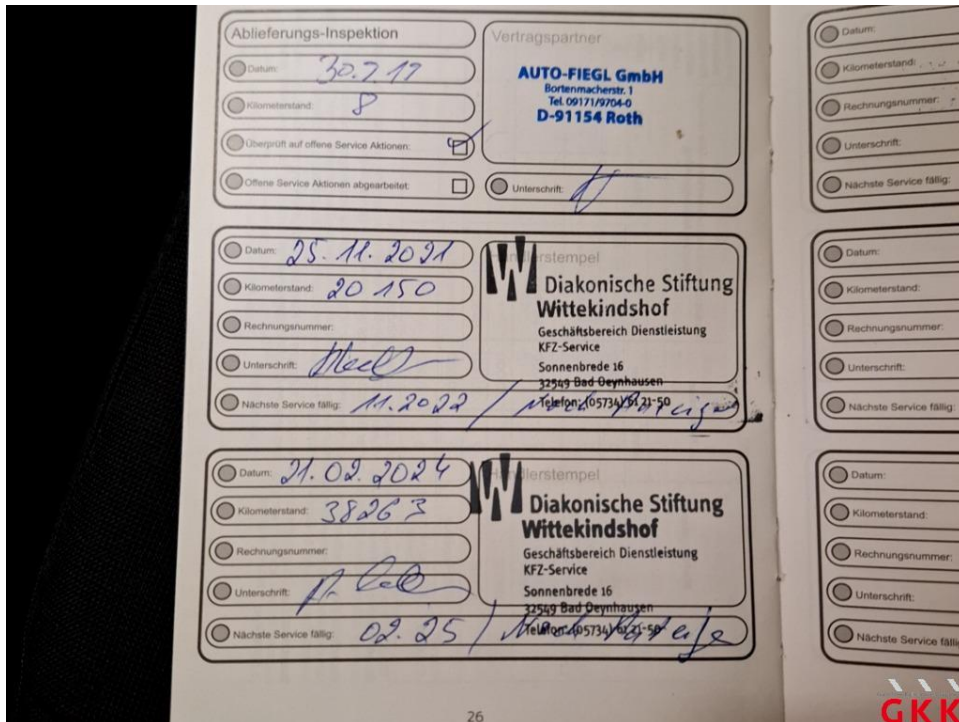 Ablieferungs-Inspektion
Datum: 30.7.17
Kilometerstand: 8
Überprüft auf offene Service Aktionen:
Offene Service Aktionen abgearbeitet:
Vertragspartner
AUTO-FIEGL GmbH
Bortenmacherstr. 1
Tel. 09171/9704-0
D-91154 Roth
Unterschrift:
Datum: 25.11.2021
Kilometerstand: 20 150
Rechnungsnummer:
Unterschrift:
Nächste Service fällig: 11.2022 / nach Anzeige
Diakonische Stiftung
Wittekindshof
Geschäftsbereich Dienstleistung
KFZ-Service
Sonnenbrede 16
32549 Bad Oeynhausen
Telefon: (05734) 61 21-50
Datum: 21.02.2024
Kilometerstand: 38263
Rechnungsnummer:
Unterschrift:
Nächste Service fällig: 02.25 / Nach Anzeige
Diakonische Stiftung
Wittekindshof
Geschäftsbereich Dienstleistung
KFZ-Service
Sonnenbrede 16
32549 Bad Oeynhausen
Telefon: (05734) 61 21-50
26
Datum:
Kilometerstand:
Rechnungsnummer:
Unterschrift:
Nächste Service fällig:
Datum:
Kilometerstand:
Rechnungsnummer:
Unterschrift:
Nächste Service fällig:
Datum:
Kilometerstand:
Rechnungsnummer:
Unterschrift:
Nächste Service fälli
GKK